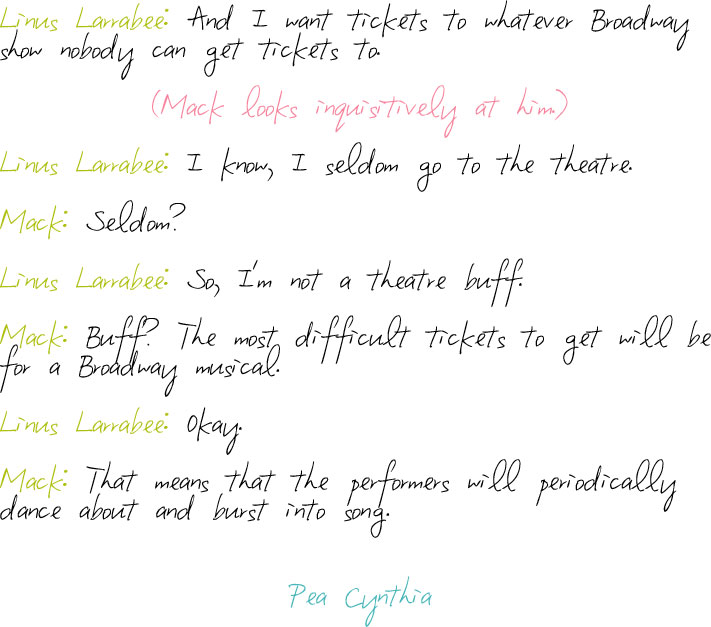 Linus Larrabee: And I want tickets to whatever Broadway
show nobody can get tickets to.
(Mack looks inquisitively at him.)
Linus Larrabee: I know, I seldom go to the theatre.
Mack: Seldom?
Linus Larrabee: So, I'm not a theatre buff.
Mack: Buff? The most difficult tickets to get will be
for a Broadway musical.
Linus Larrabee: Okay.
Mack: That means that the performers will periodically
dance about and burst into song.
Pea Cynthia